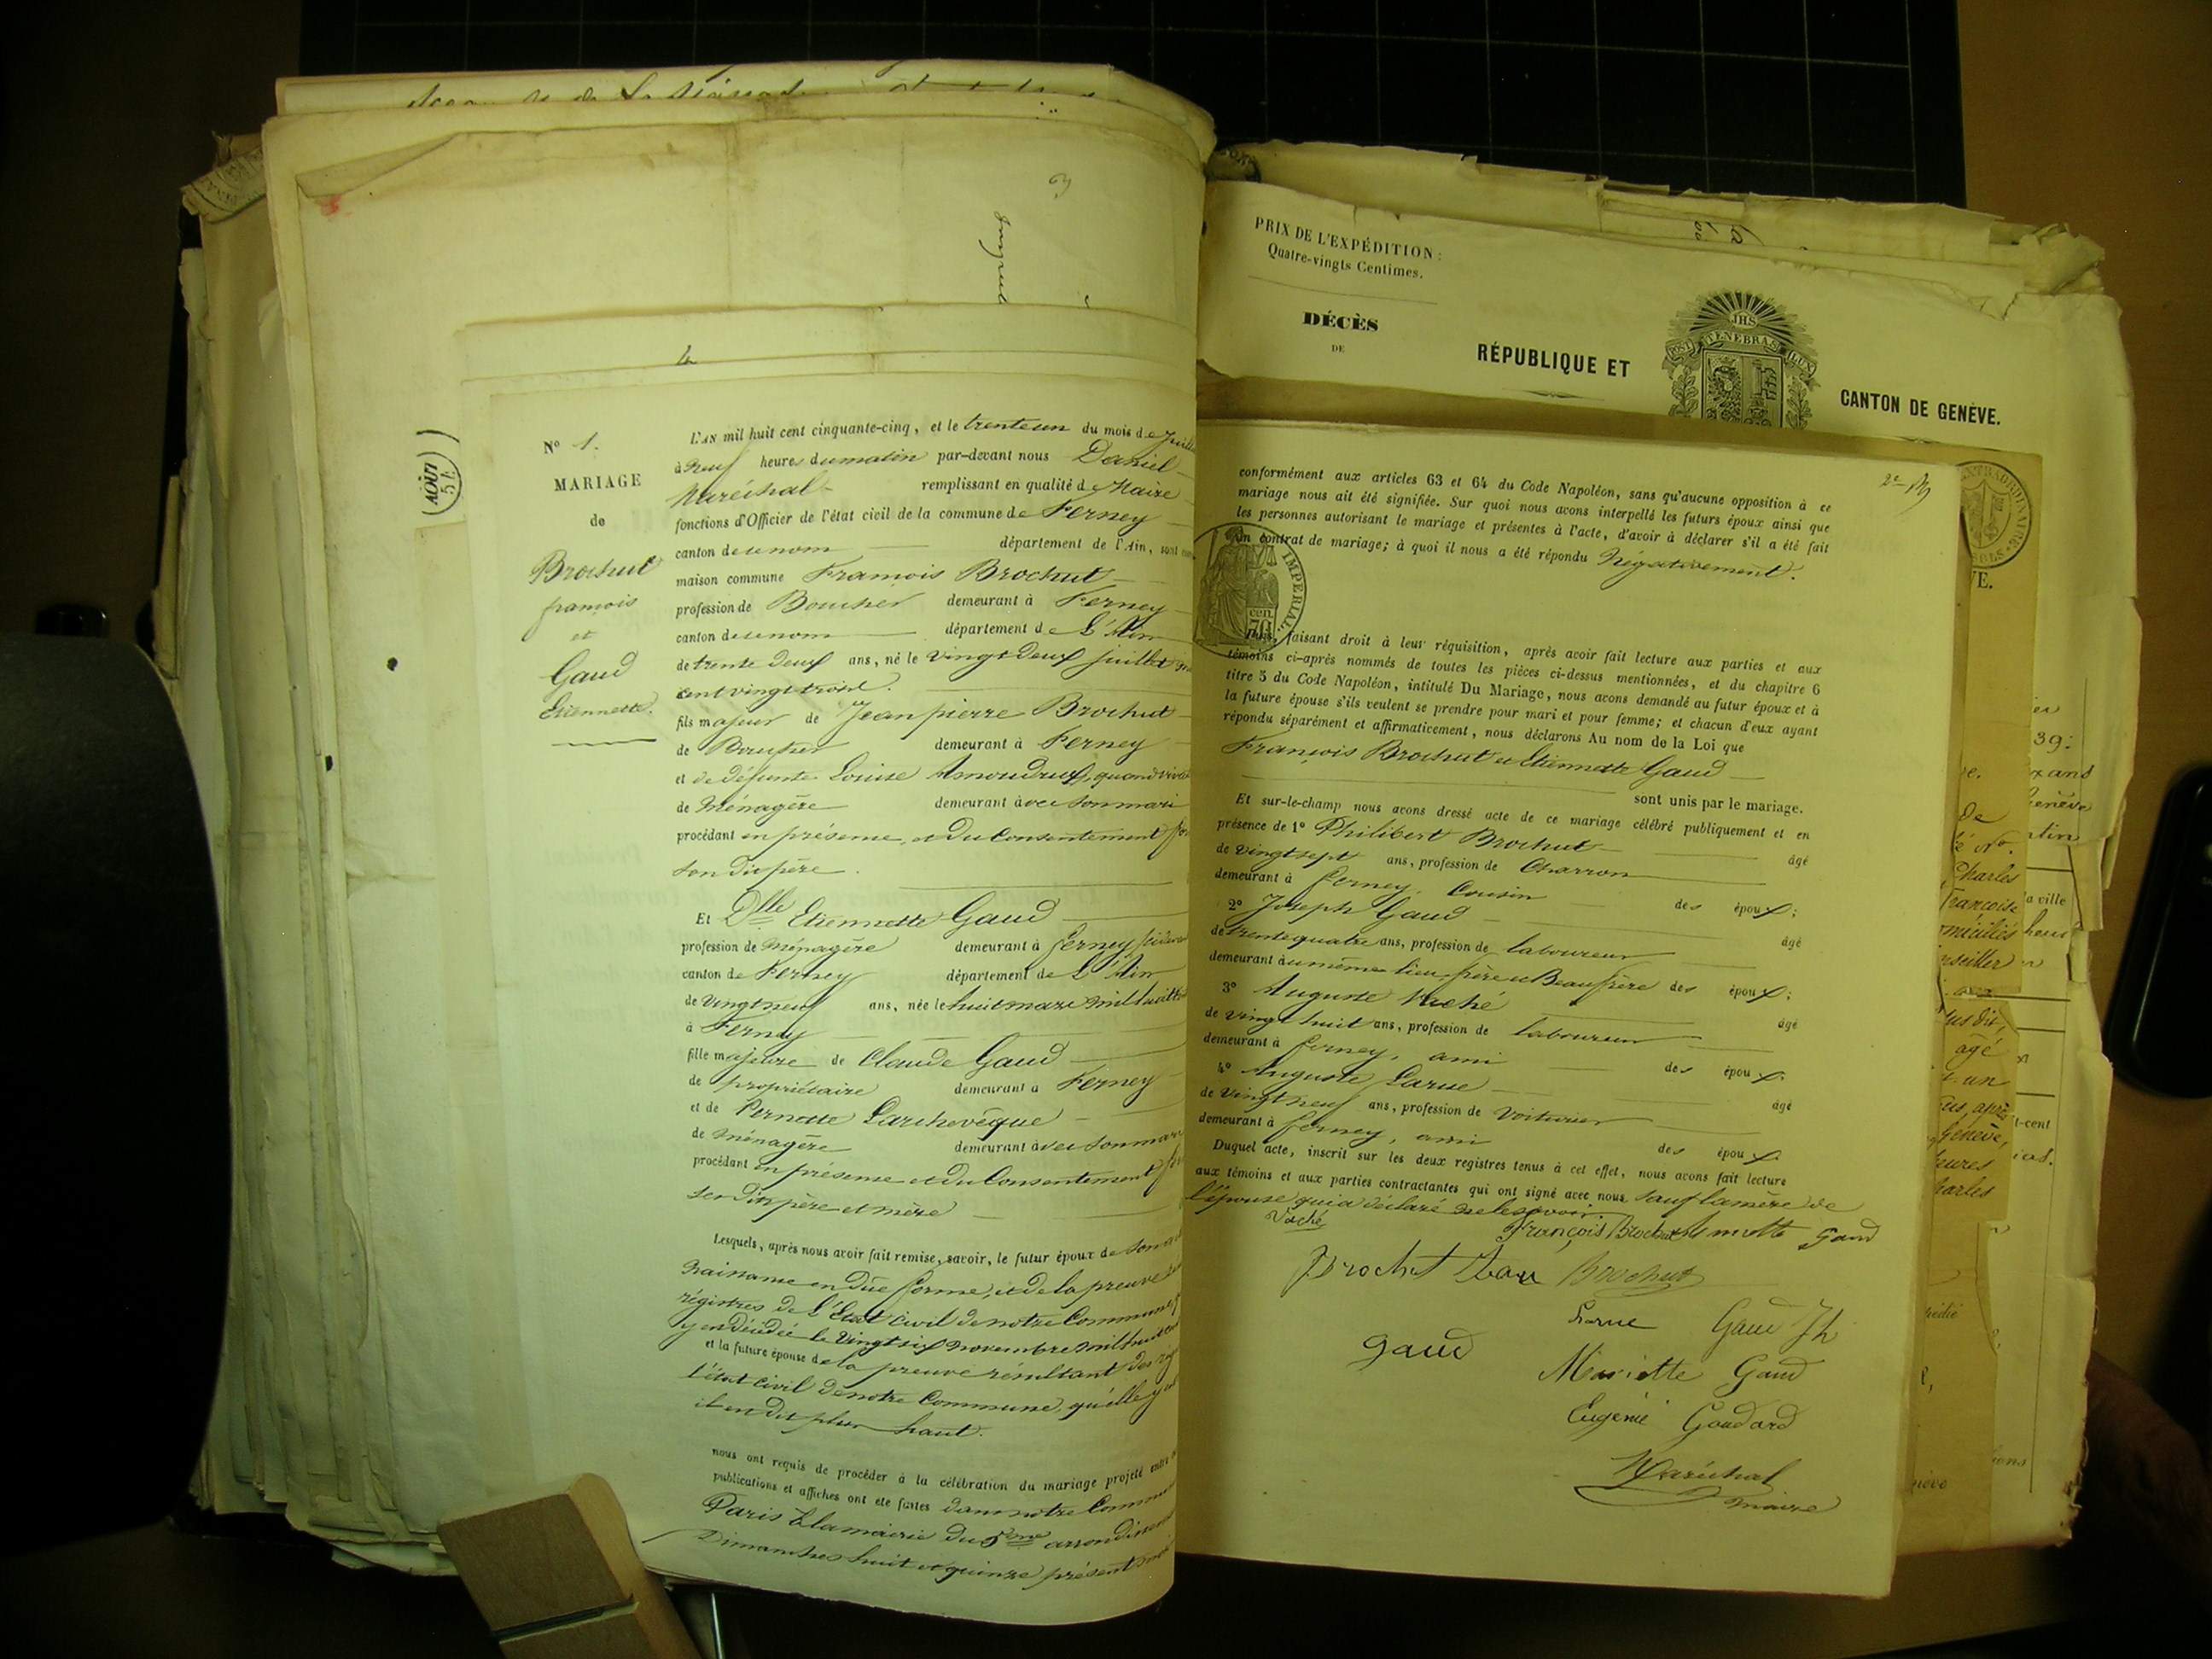 AOÛT
54
3
4
N° 1.
MARIAGE
de
Brochut
françois
et
Gaud
Etiennette.
L'AN mil huit cent cinquante-cinq, et le trente un du mois de
à neuf heures du matin par-devant nous Daniel
Maréchal remplissant en qualité de Maire
fonctions d'Officier de l'état civil de la commune de Ferney
canton de ce nom département de l'Ain, sont
maison commune François Brochut
profession de Boucher demeurant à Ferney
canton de ce nom département de L'Ain
de trente deux ans, né le vingt deux juillet
cent vingt trois.
fils majeur de Jean pierre Brochut
de Boucher demeurant à Ferney
et de défunte Louise Amoudrux, quand vivait
de Ménagère demeurant avec son mari
procédant en présence, et du Consentement
son dit père.
Et Dlle Etiennette Gaud
profession de Ménagère demeurant à Ferney
canton de Ferney département de L'Ain
de vingt neuf ans, née le huit mars mil huit
à Ferney
fille majeure de Claude Gaud
de propriétaire demeurant à Ferney
et de Pernette Larchevêque
de Ménagère demeurant avec son mari
procédant en présence et du Consentement
ses dits père et mère
Lesquels, après nous avoir fait remise, savoir, le futur époux de son
naissance en due forme, et de la preuve
régistres de L'Etat civil de notre Commune,
y est décédée le vingt six novembre mil huit cent
et la future épouse de la preuve résultant des
l'état civil de notre Commune, qu'elle y
il est dit plus haut.
nous ont requis de procéder à la célébration du mariage projeté entre
publications et affiches ont été faites dans notre Commune
Paris à la mairie du 5eme arrondissement
Dimanches huit et quinze présent mois
PRIX DE L'EXPÉDITION:
Quatre-vingts Centimes.
DÉCÈS
DE
RÉPUBLIQUE ET
JHS
POST TENEBRAS LUX
CANTON DE GENÈVE.
conformément aux articles 63 et 64 du Code Napoléon, sans qu'aucune opposition à ce
mariage nous ait été signifiée. Sur quoi nous avons interpellé les futurs époux ainsi que
les personnes autorisant le mariage et présentes à l'acte, d'avoir à déclarer s'il a été fait
un contrat de mariage; à quoi il nous a été répondu Négativement.
IMPERIAL
Nous, faisant droit à leur réquisition, après avoir fait lecture aux parties et aux
témoins ci-après nommés de toutes les pièces ci-dessus mentionnées, et du chapitre 6
titre 5 du Code Napoléon, intitulé Du Mariage, nous avons demandé au futur époux et à
la future épouse s'ils veulent se prendre pour mari et pour femme; et chacun d'eux ayant
répondu séparément et affirmativement, nous déclarons Au nom de la Loi que
François Brochut et Etiennette Gaud
sont unis par le mariage.
Et sur-le-champ nous avons dressé acte de ce mariage célébré publiquement et en
présence de 1° Philibert Brochut âgé
de vingt sept ans, profession de Charron
demeurant à Ferney, Cousin des époux;
2° Joseph Gaud âgé
de trente quatre ans, profession de laboureur
demeurant au même lieu, frère et Beau frère des époux;
3° Auguste Vaché âgé
de vingt huit ans, profession de laboureur
demeurant à Ferney, ami des époux.
4° Auguste Larue âgé
de vingt neuf ans, profession de Voiturier
demeurant à Ferney, ami des époux.
Duquel acte, inscrit sur les deux registres tenus à cet effet, nous avons fait lecture
aux témoins et aux parties contractantes qui ont signé avec nous, sauf la mère de
l'épouse qui a déclaré ne le savoir.
Vaché François Brochut Gaud
Brochut Brochut
Larue Gaud Jh
Gaud
Mariette Gaud
Eugénie Goudard
Maréchal
maire
39:
Genève
Charles
Françoise
la ville
âgé
un
Genève,
heures